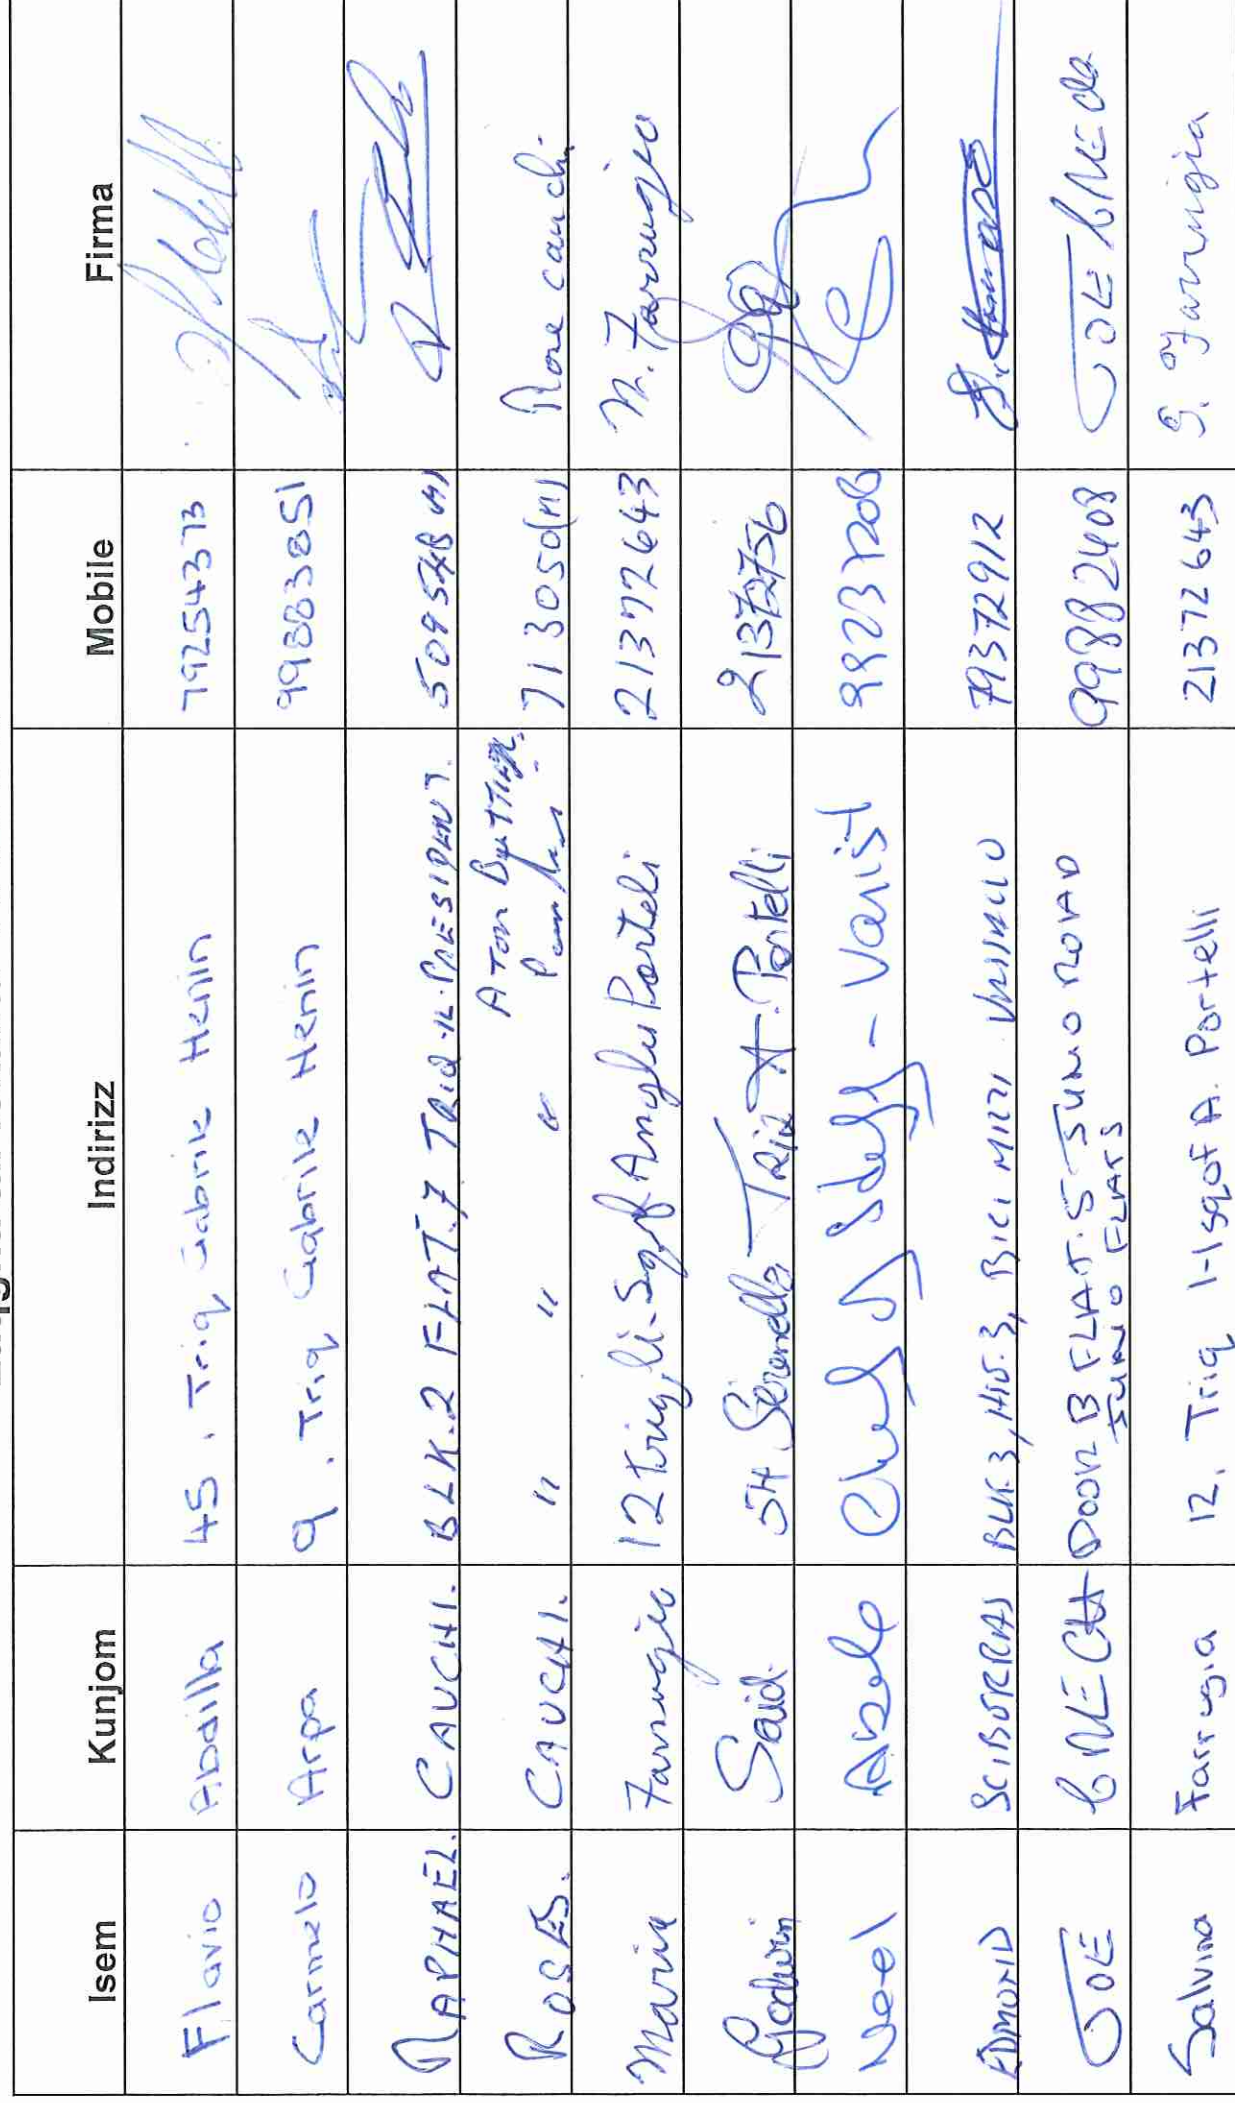 Isem Kunjom Indirizz Mobile Firma
Flavio Abdilla 45, Triq Gabriele Henin 79254373
Carmelo Arpa 9, Triq Gabriele Henin 99883851
RAPHAEL. CAUCHI. BLK.2 FLAT.7 TRIQ-IL-PRESIDENT.
ROSES. CAUCHI. " " " ATON BUTTIGIEG. 713050(M) Rose cauchi.
Maria Farrugia 12 Triq, li-Sqof Anglu Portelli 21372643 M. Farrugia
Godwin Said. 54 Serenella Triq A. Portelli 21372756
Noel Abela 99237206
EDMOND SCIBERRAS BLK 3, NO.3, 79372912
JOE GNECH DOOR B FLAT.5 JUNO ROAD 99882408 JOE GNECH
JUNO FLATS
Salvina Farrugia 12, Triq l-Isqof A. Portelli 21372643 S. Farrugia